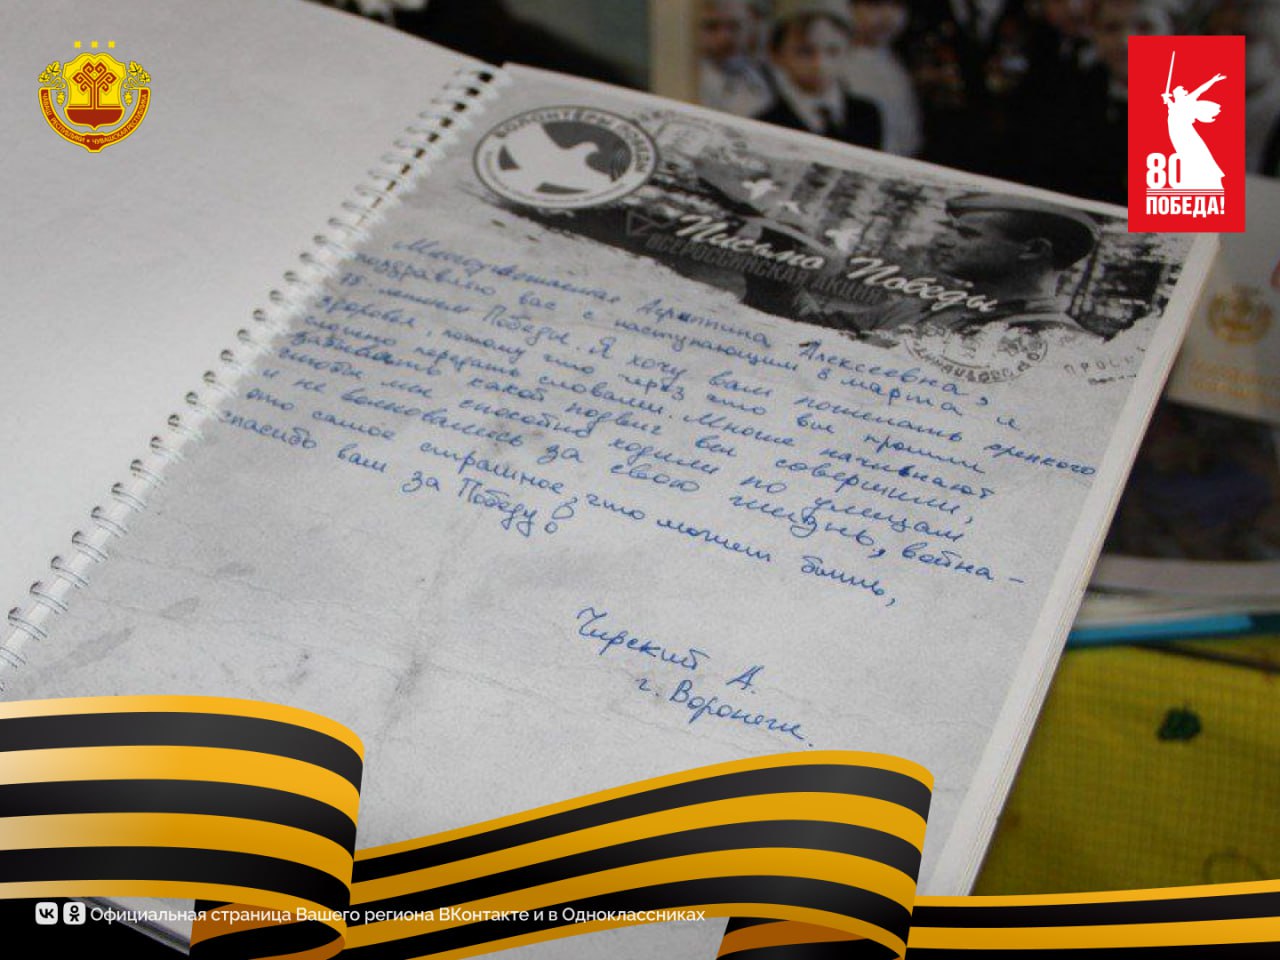 ЧĂВАШ РЕСПУБЛИКИ • ЧУВАШСКАЯ РЕСПУБЛИКА
80
ПОБЕДА!
ВОЛОНТЁРЫ ПОБЕДЫ
Письмо Победы
ВСЕРОССИЙСКАЯ АКЦИЯ
Многоуважаемая Агриппина Алексеевна,
поздравляю вас с наступающим 8 марта и
летием Победы. Я хочу вам пожелать крепкого
здоровья, потому что через что вы прошли
сложно передать словами. Многие начинают
забывать какой подвиг вы совершили,
чтобы мы спокойно ходили по улицам
и не волновались за свою жизнь, война –
это самое страшное, что может быть,
спасибо вам за Победу!
Чирский А.
г. Воронеж.
Официальная страница Вашего региона ВКонтакте и в Одноклассниках